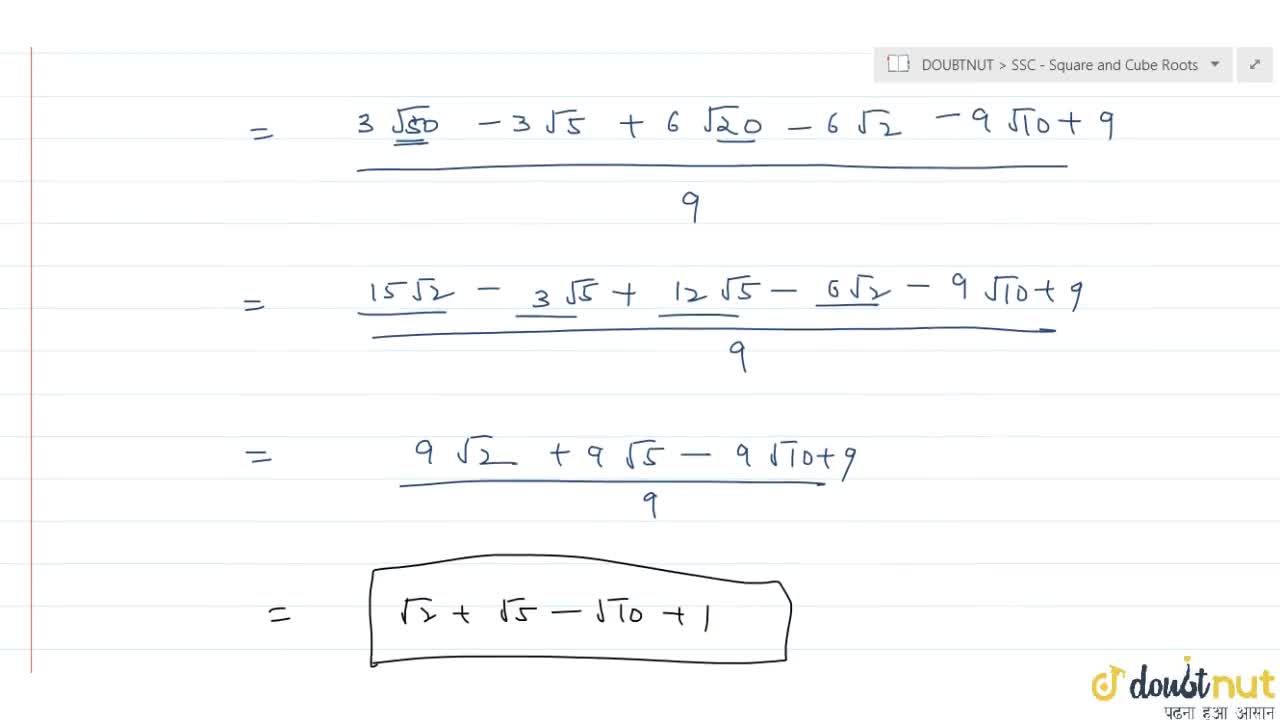 DOUBTNUT > SSC - Square and Cube Roots
= 3 √50 - 3 √5 + 6 √20 - 6 √2 - 9 √10 + 9
9
= 15√2 - 3√5 + 12√5 - 6√2 - 9 √10 + 9
9
= 9 √2 + 9 √5 - 9 √10 + 9
9
= √2 + √5 - √10 + 1
doubtnut
पढ़ना हुआ आसान